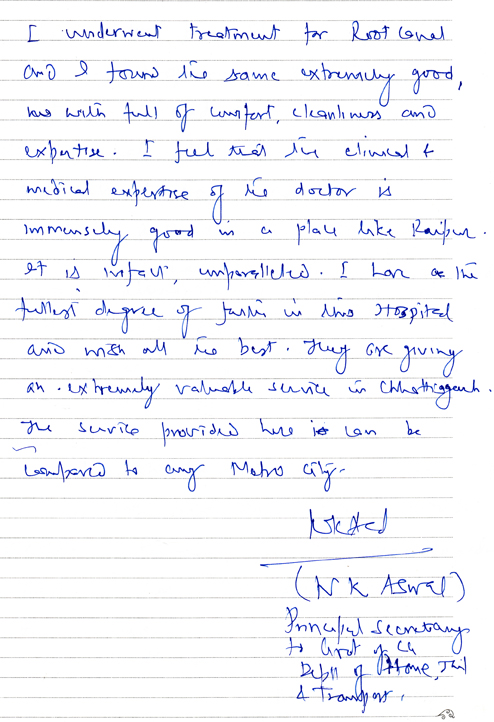 I underwent treatment for Root Canal
and I found the same extremely good,
with full of comfort, cleanliness and
expertise. I feel that the clinical &
medical expertise of the doctor is
immensely good in a place like Raipur.
It is infact, unparalleled. I have the
fullest degree of faith in this Hospital
and wish all the best. They are giving
an extremely valuable service in Chhattisgarh.
The service provided here can be
compared to any Metro City.
(N K Aswal)
Principal Secretary
to Govt of CG
Deptt of Home, Jail
& Transport.